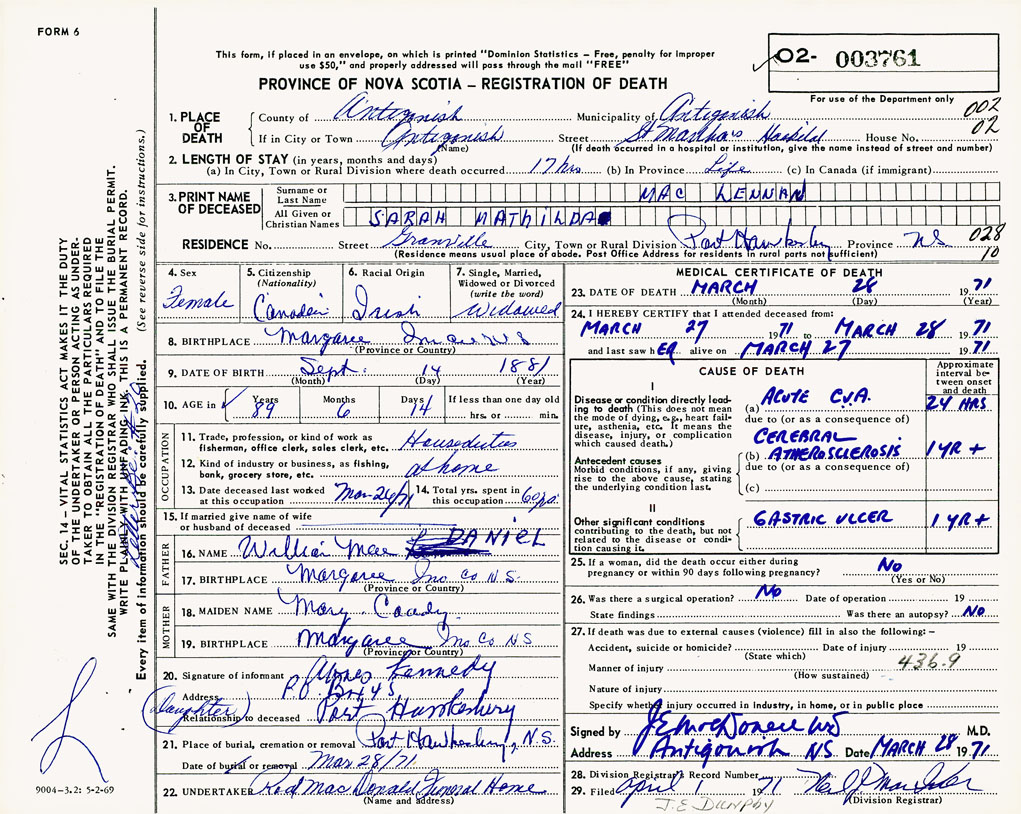 FORM 6
This form, if placed in an envelope, on which is printed "Dominion Statistics – Free, penalty for improper
use $50," and properly addressed will pass through the mail "FREE"
02- 003761
PROVINCE OF NOVA SCOTIA – REGISTRATION OF DEATH
For use of the Department only
002
02
1. PLACE OF DEATH
County of Antigonish Municipality of Antigonish
If in City or Town Antigonish Street St Marthas Hospital House No.
(Name) (If death occurred in a hospital or institution, give the name instead of street and number)
2. LENGTH OF STAY (in years, months and days)
(a) In City, Town or Rural Division where death occurred 17 hrs (b) In Province Life (c) In Canada (if immigrant)
3. PRINT NAME OF DECEASED
Surname or Last Name MAC LENNAN
All Given or Christian Names SARAH MATHILDA
RESIDENCE No. Street Granville City, Town or Rural Division Port Hawkesbury Province NS 028
(Residence means usual place of abode. Post Office Address for residents in rural parts not sufficient) 10
4. Sex
Female
5. Citizenship
(Nationality)
Canadian
6. Racial Origin
Irish
7. Single, Married,
Widowed or Divorced
(write the word)
Widowed
8. BIRTHPLACE Margaree
(Province or Country)
9. DATE OF BIRTH Sept. 14 1881
(Month) (Day) (Year)
10. AGE in Years Months Days If less than one day old
89 6 14 hrs. or min.
OCCUPATION
11. Trade, profession, or kind of work as
fisherman, office clerk, sales clerk, etc. Houseduties
12. Kind of industry or business, as fishing,
bank, grocery store, etc. at home
13. Date deceased last worked
at this occupation Mar 26/71
14. Total yrs. spent in
this occupation
15. If married give name of wife
or husband of deceased
FATHER
16. NAME William Mac DANIEL
17. BIRTHPLACE Margaree Inv. Co N.S.
(Province or Country)
MOTHER
18. MAIDEN NAME Mary Coady
19. BIRTHPLACE Margaree Inv Co NS
(Province or Country)
20. Signature of informant Agnes Kennedy
Address P.O. Box 45
(daughter) Port Hawkesbury
Relationship to deceased
21. Place of burial, cremation or removal Port Hawkesbury, N.S.
Date of burial or removal Mar 28/71
22. UNDERTAKER Rod MacDonald Funeral Home
(Name and address)
MEDICAL CERTIFICATE OF DEATH
23. DATE OF DEATH MARCH 28 1971
(Month) (Day) (Year)
24. I HEREBY CERTIFY that I attended deceased from:
MARCH 27 1971 to MARCH 28 1971
and last saw hER alive on MARCH 27 1971
CAUSE OF DEATH
Approximate interval between onset and death
I
Disease or condition directly leading to death (This does not mean the mode of dying, e.g., heart failure, asthenia, etc. It means the disease, injury, or complication which caused death.)
(a) ACUTE C.V.A. 24 HRS
due to (or as a consequence of)
CEREBRAL
(b) ATHEROSCLEROSIS 1 YR +
Antecedent causes
Morbid conditions, if any, giving rise to the above cause, stating the underlying condition last.
due to (or as a consequence of)
(c)
II
Other significant conditions contributing to the death, but not related to the disease or condition causing it.
GASTRIC ULCER 1 YR +
25. If a woman, did the death occur either during
pregnancy or within 90 days following pregnancy? No
(Yes or No)
26. Was there a surgical operation? No Date of operation 19
State findings Was there an autopsy? No
27. If death was due to external causes (violence) fill in also the following: –
Accident, suicide or homicide? Date of injury 19
(State which)
436.9
Manner of injury
(How sustained)
Nature of injury
Specify whether injury occurred in industry, in home, or in public place
Signed by J E McDonell MD M.D.
Address Antigonish NS Date MARCH 28 1971
28. Division Registrar's Record Number
29. Filed April 1 1971
(Division Registrar)
J.E. DUNPHY
SEC. 14 – VITAL STATISTICS ACT MAKES IT THE DUTY
OF THE UNDERTAKER OR PERSON ACTING AS UNDER-
TAKER TO OBTAIN ALL THE PARTICULARS REQUIRED
IN THE "REGISTRATION OF DEATH" AND TO FILE THE
SAME WITH THE DIVISION REGISTRAR WHO SHALL ISSUE THE BURIAL PERMIT.
WRITE PLAINLY WITH UNFADING INK. THIS IS A PERMANENT RECORD.
Every item of information should be carefully supplied. (See reverse side for instructions.)
9004-3.2: 5-2-69